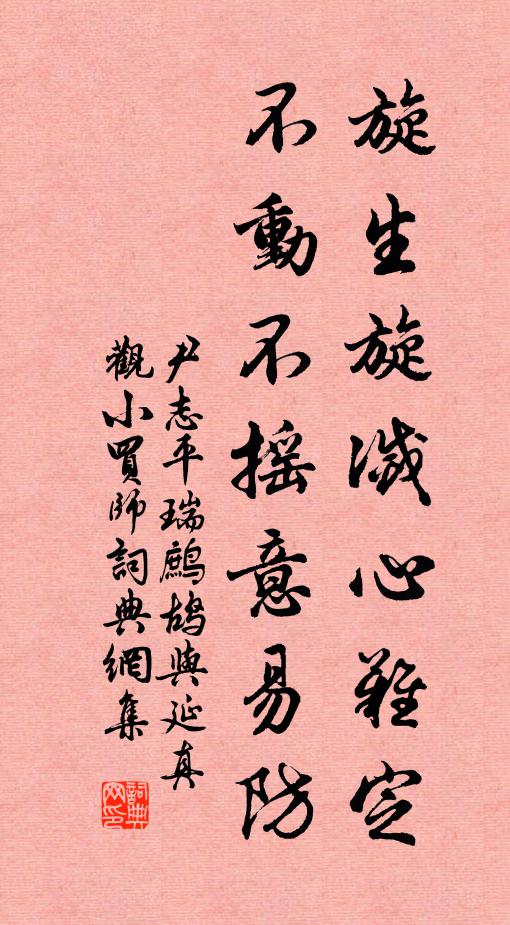 旋生旋滅心難定
不動不摇意易防
尹志平瑞鷓鴣與延真
觀小買師詞典網集
詞典网印